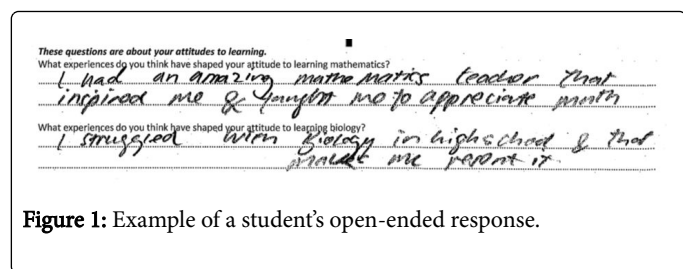 These questions are about your attitudes to learning.
What experiences do you think have shaped your attitude to learning mathematics?
I had an amazing mathematics teacher that
inspired me & taught me to appreciate math
What experiences do you think have shaped your attitude to learning biology?
I struggled with Biology in highschool & that
makes me resent it
Figure 1: Example of a student's open-ended response.